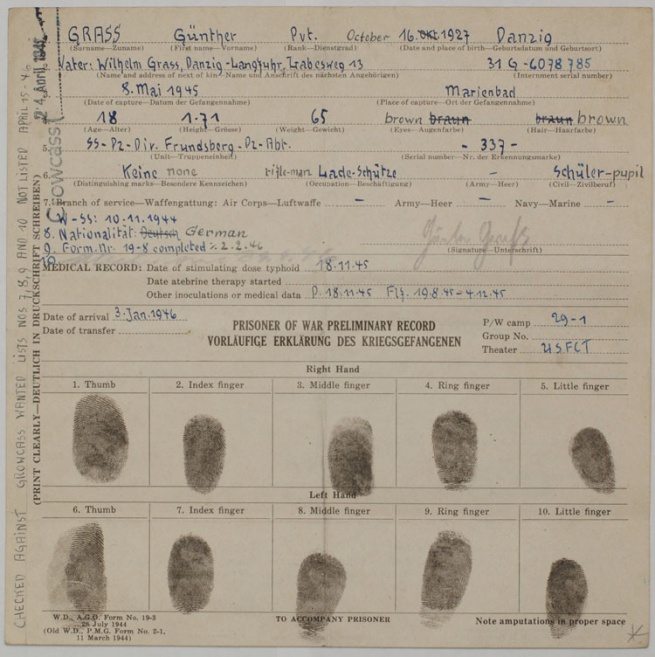 GRASS Günther Pvt. October 16. Okt 1927 Danzig
(Surname—Zuname) (First name—Vorname) (Rank—Dienstgrad) (Date and place of birth—Geburtsdatum und Geburtsort)
Vater: Wilhelm Grass, Danzig-Langfuhr, Labesweg 13 31 G-6078785
(Name and address of next of kin—Name und Anschrift des nächsten Angehörigen) (Internment serial number)
8. Mai 1945 Marienbad
(Date of capture—Datum der Gefangennahme) (Place of capture—Ort der Gefangennahme)
18 1.71 65 brown braun braun brown
(Age—Alter) (Height—Grösse) (Weight—Gewicht) (Eyes—Augenfarbe) (Hair—Haarfarbe)
SS-Pz-Div. Frundsberg-Pz-Abt. - 337 -
(Unit—Truppeneinheit) (Serial number—Nr. der Erkennungsmarke)
Keine none rifle-man Lade-Schütze – Schüler-pupil
(Distinguishing marks—Besondere Kennzeichen) (Occupation—Beschäftigung) (Army—Heer) (Civil—Zivilberuf)
7. Branch of service—Waffengattung: Air Corps—Luftwaffe – Army—Heer – Navy—Marine –
W-SS: 10.11.1944
8. Nationalität: Deutsch German
9. Form. Nr. 19-8 completed 2.2.46
(Signature—Unterschrift)
MEDICAL RECORD: Date of stimulating dose typhoid 18.11.45
Date atebrine therapy started
Other inoculations or medical data P. 18.11.45 19.8.45-4.12.45
Date of arrival 3. Jan. 1946
Date of transfer
PRISONER OF WAR PRELIMINARY RECORD
VORLÄUFIGE ERKLÄRUNG DES KRIEGSGEFANGENEN
P/W camp 29-1
Group No.
Theater USFET
Right Hand
1. Thumb 2. Index finger 3. Middle finger 4. Ring finger 5. Little finger
Left Hand
6. Thumb 7. Index finger 8. Middle finger 9. Ring finger 10. Little finger
W.D., A.G.O. Form No. 19-3
28 July 1944
(Old W.D., P.M.G. Form No. 2-1,
11 March 1944)
TO ACCOMPANY PRISONER
Note amputations in proper space
CHECKED AGAINST GROWCASS WANTED LISTS NOS 7,8,9 AND 10 NOT LISTED APRIL 15-46
(PRINT CLEARLY—DEUTLICH IN DRUCKSCHRIFT SCHREIBEN)
Crowcass
24. April 194